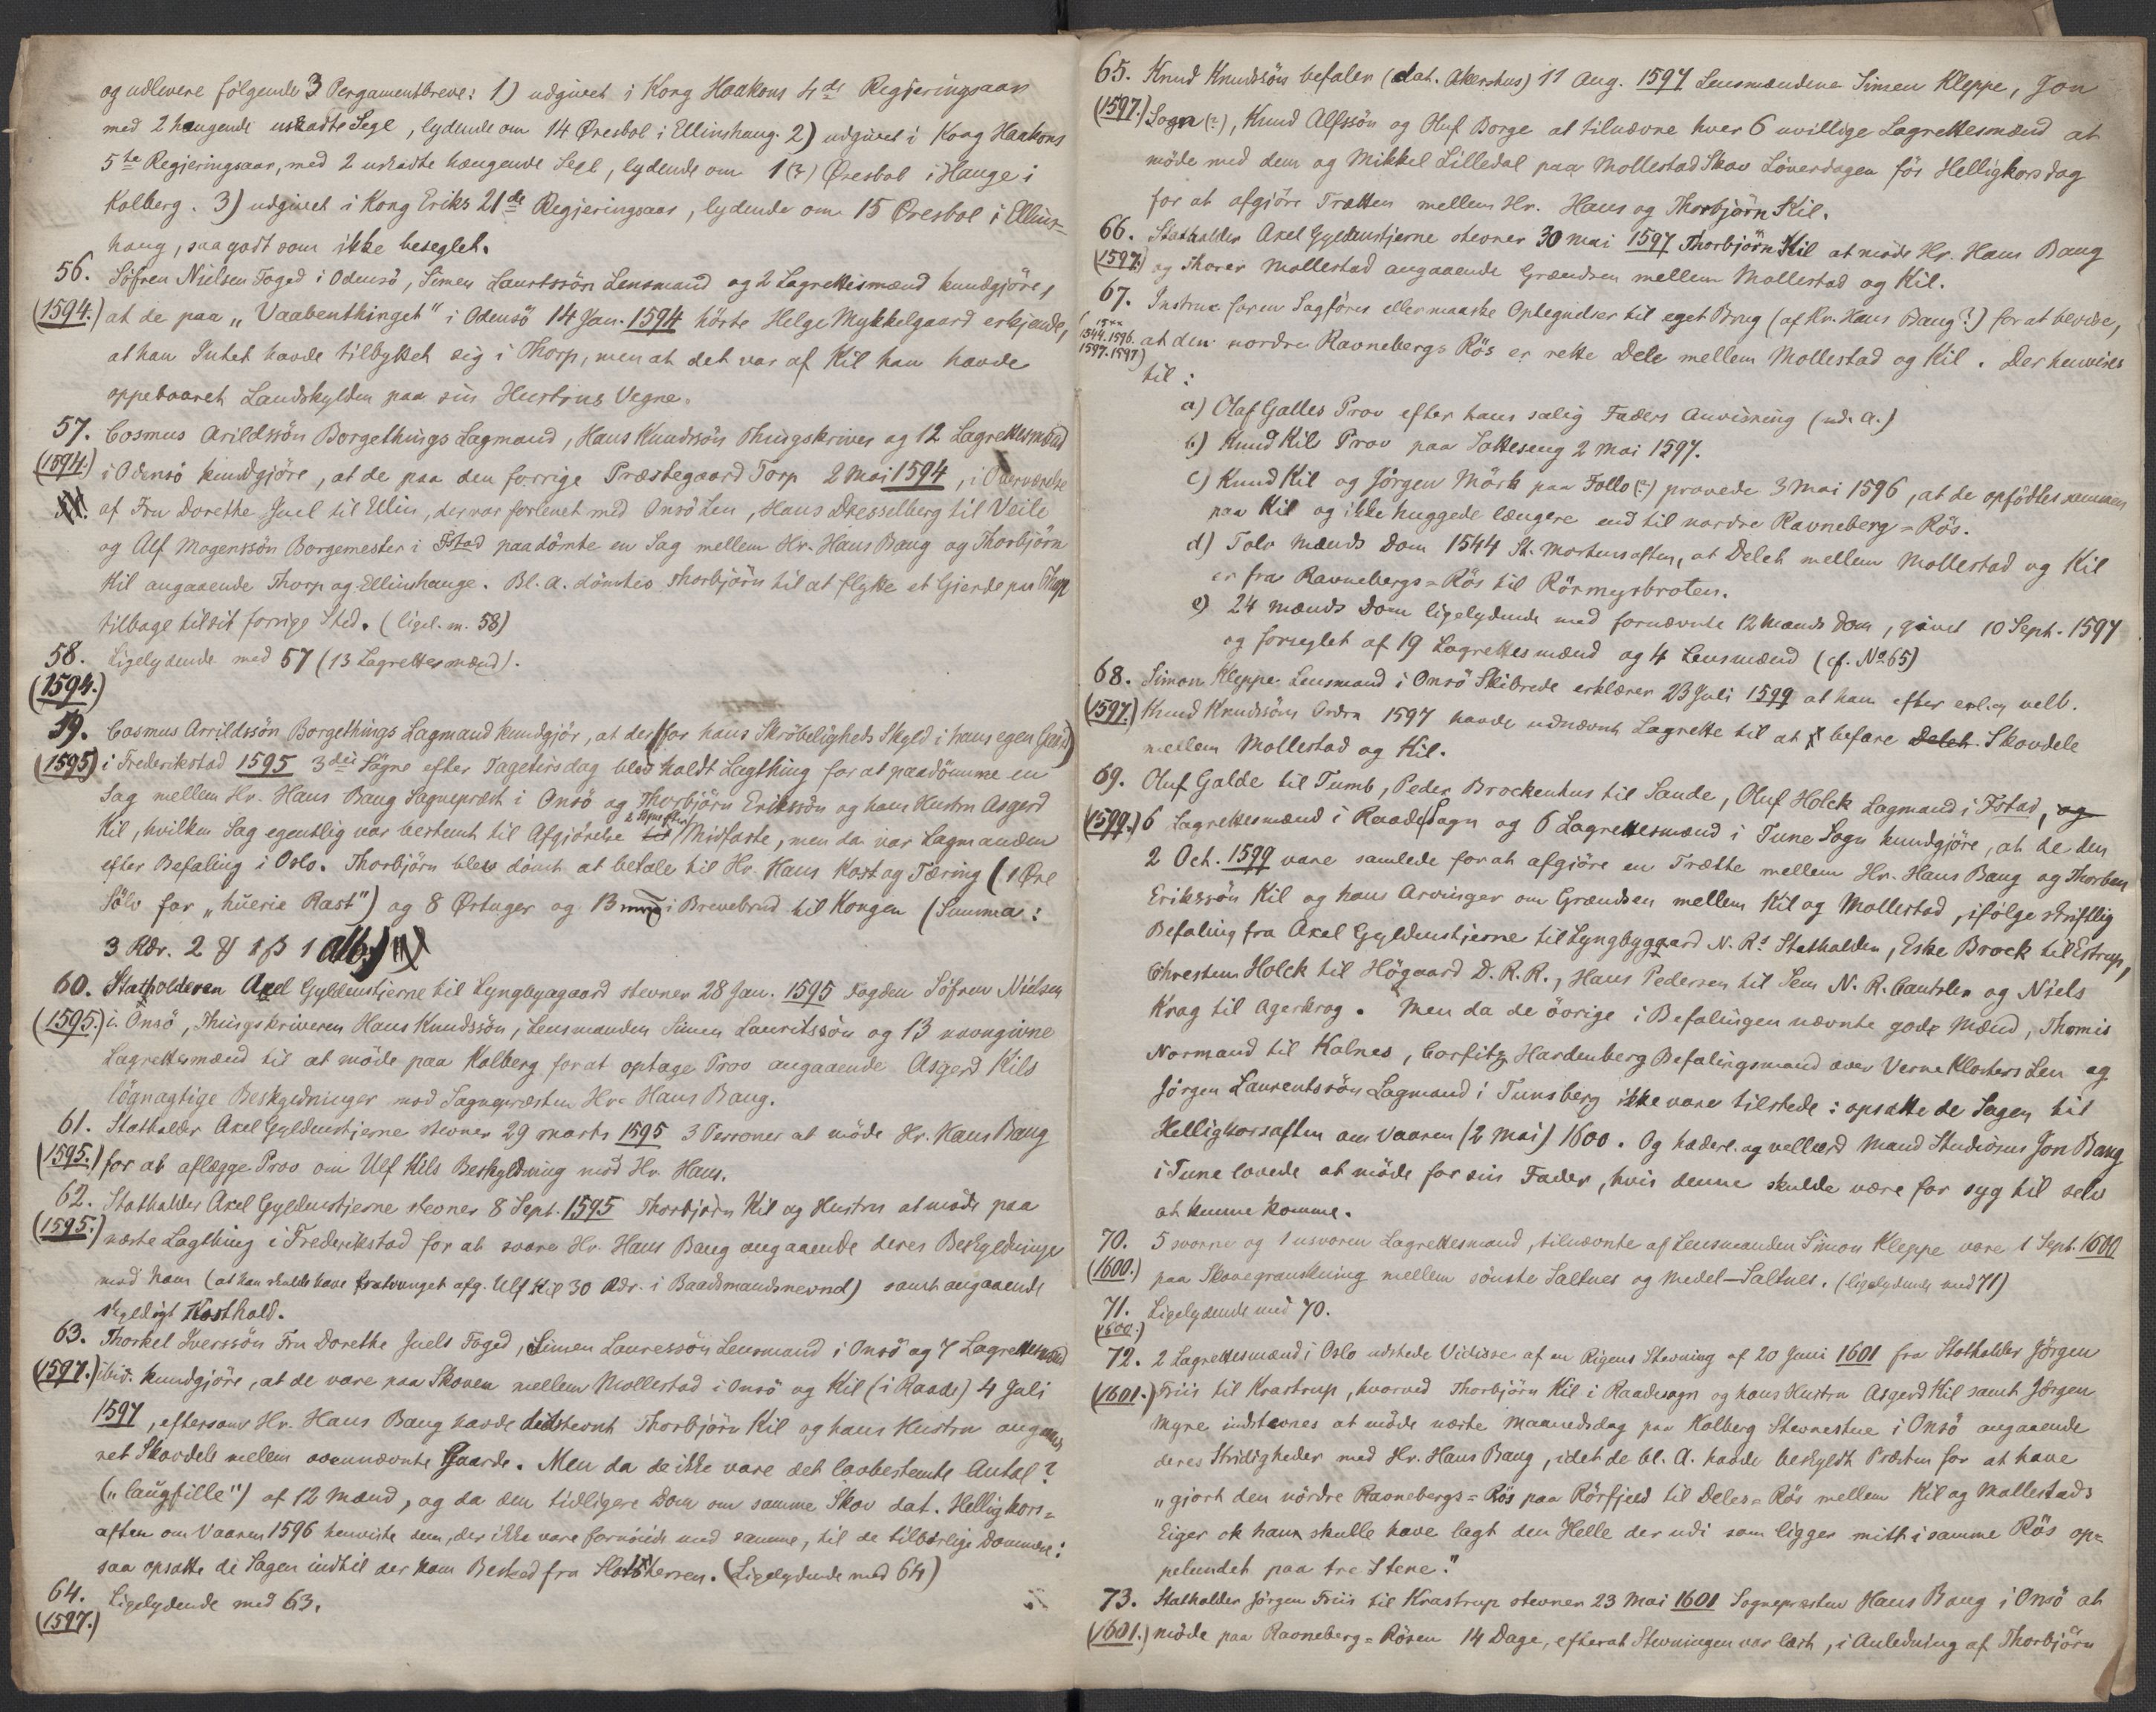 og udlevere følgende 3 Pergamentbreve: 1) udgivet i Kong Haakons 4de Regjeringsaar
med 2 hængende uskadte Segl, lydende om 14 Øresbol i Ellinshaug. 2) udgivet i Kong Haakons
5te Regjeringsaar, med 2 uskadte hængende Segl, lydende om 1 (?) Øresbol i Hauge i
Kolberg. 3) udgivet i Kong Eriks 21de Regjeringsaar, lydende om 15 Øresbol i Ellins-
haug, saa godt som ikke beseglet.
56. Söfren Nielsen Foged i Odensö, Simen Lauritssön Lensmand og 2 Lagrettismænd kundgjöre,
(1594.) at de paa „Vaabenthinget" i Odensö 14 Jan. 1594 hörte Helge Mykkelgaard erkjende,
at han Intet havde tilbyttet sig i Thorp, men at det var af Kil han havde
oppebaaret Landskylden paa sin Hustrus Vegne.
57. Cosmus Arildssön Borgethings Lagmand, Hans Knudssön Thingskriver og 12 Lagrettesmænd
(1594.) i Odensö kundgjöre, at de paa den forrige Præstegaard Torp 2 Mai 1594, i Overværelse
af Fru Dorethe Juel til Elin, der var forlenet med Onsö Len, Hans Dresselberg til Veile
og Alf Mogenssön Borgemester i Fstad paadömte en Sag mellem Hr. Hans Bang og Thorbjörn
Kil angaaende Thorp og Ellinshauge. Bl. a. dömtes Thorbjörn til at flytte et Gjerde paa Thorp
tilbage til sit forrige Sted. (ligel. m. 58)
58. Ligelydende med 57 (13 Lagrettesmænd).
(1594.)
59. Cosmus Arrildssön Borgethings Lagmand kundgjör, at der (for hans Skröbeligheds Skyld i hans egen Gaard)
(1595) i Frederikstad 1595 3die Sögne efter Fagetirsdag blev holdt Lagthing for at paadömme en
Sag mellem Hr. Hans Bang Sognepræst i Onsö og Thorbjörn Erikssön og hans Hustru Asgerd
Kil, hvilken Sag egentlig var bestemt til Afgjörelse Midfaste, men da var Lagmanden
efter Befaling i Oslo. Thorbjörn blev dömt at betale til Hr. Hans Kost og Tæring (1 Øre
Sölv for „hüerie Rast") og 8 Ørtuger og 13 i Brevebrud til Kongen (Summa:
3 Rdr. 2 1 1 alb.)
60. Statholderen Axel Gyldenstjerne til Lyngbygaard stevner 28 Jan. 1595 Fogden Söfren Nielsen
(1595.) i Onsö, Thingskriveren Hans Knudssön, Lensmanden Simen Lauritssön og 13 navngivne
Lagrettesmænd til at möde paa Kolberg for at optage Prov angaaende Asgerd Kils
lögnagtige Beskyldninger mod Sognepræsten Hr. Hans Bang.
61. Statholder Axel Gyldenstjerne stevner 29 Marts 1595 3 Personer at möde Hr. Hans Bang
(1595.) for at aflægge Prov om Ulf Kils Beskyldning mod Hr. Hans.
62. Statholder Axel Gyldenstjerne stevner 8 Sept. 1595 Thorbjörn Kil og Hustru at möde paa
(1595.) næste Lagthing i Frederikstad for at svare Hr. Hans Bang angaaende deres Beskyldninge
mod ham (at han skulde have fratvunget afg. Ulf Kil 30 Rdr. i Baadsmandsnevnd) samt angaaende
skyldigt Kosthold.
63. Thorkel Iverssön Fru Dorethe Juels Foged, Simen Lauressön Lensmand i Onsö og 7 Lagrettesmænd
(1597.) ibid. kundgjöre, at de vare paa Skoven mellem Mollestad i Onsö og Kil (i Raade) 4 Juli
1597, eftersom Hr. Hans Bang havde did stevnt Thorbjörn Kil og hans Hustru angaaende
ret Skovdele mellem ovennævnte Gaarde. Men da de ikke vare det lovbestemte Antal?
(„laügfille") af 12 Mænd, og da den tidligere Dom om samme Skov dat. Helligkors-
aften om Vaaren 1596 henviste dem, der ikke vare fornöiede med samme, til de tilbörlige Dommere:
saa opsatte de Sagen indtil der kom Besked fra Slotsherren. (Ligelydende med 64)
64. Ligelydende med 63.
(1597.)
65. Knud Knudssön befaler (dat. Akershus) 11 Aug. 1597 Lensmændene Simen Kleppe, Jon
(1597.) Sogn (?), Knud Alfssön og Oluf Borge at tilnævne hver 6 uvillige Lagrettesmænd at
möde med dem og Mikkel Lilledal paa Mollestad Skov Löverdagen för Helligkorsdag
for at afgjöre Trætten mellem Hr. Hans og Thorbjörn Kil.
66. Statholder Axel Gyldenstjerne stevner 30 Mai 1597 Thorbjörn Kil at möde Hr. Hans Bang
(1597.) og Thorer Mollestad angaaende Grændsen mellem Mollestad og Kil.
67. Instrux for en Sagförer eller maaske Optegnelser til eget Brug (af Hr. Hans Bang?) for at bevise,
(1544. 1596. 1597. 1597) at den nordre Ravnebergs Rös er rette Dele mellem Mollestad og Kil. Der henvises
til:
a) Olaf Galles Prov efter hans salig Faders Anvisning (ud. A.)
b) Knud Kils Prov paa Sotteseng 2 Mai 1597.
c) Knud Kil og Jörgen Mörk paa Follo (?) provede 3 Mai 1596, at de opfödtes sammen
paa Kil og ikke huggede længere end til nordre Ravneberg-Rös.
d) Tolv Mænds Dom 1544 St. Mortensaften, at Delet mellem Mollestad og Kil
er fra Ravnebergs-Rös til Rörmyrbroten.
e) 24 Mænds Dom ligelydende med fornævnte 12 Mænds Dom, givet 10 Sept. 1597
og forseglet af 19 Lagrettesmænd og 4 Lensmænd (cf. No 65)
68. Simon Kleppe Lensmand i Onsö Skibrede erklærer 23 Juli 1599 at han efter erlig velb.
(1597.) Knud Knudssöns Ordre 1597 havde udnævnt Lagrette til at befare Delet Skovdele
mellem Mollestad og Kil.
69. Oluf Galde til Tumb, Peder Brockenhus til Sande, Oluf Holck Lagmand i Fstad, og
(1599.) 6 Lagrettesmænd i Raade Sogn og 6 Lagrettesmænd i Tune Sogn kundgjöre, at de den
2 Oct. 1599 vare samlede for at afgjöre en Trætte mellem Hr. Hans Bang og Thorben
Erikssön Kil og hans Arvinger om Grændsen mellem Kil og Mollestad, ifölge skriftlig
Befaling fra Axel Gyldenstjerne til Lyngbygaard N. Rs Statholder, Eske Brock til Estrup,
Chresten Holck til Högaard D. R. R., Hans Pedersen til Sem N. R. Cantsler og Niels
Krag til Agerkrog. Men da de övrige i Befalingen nævnte gode Mænd, Thomis
Normand til Kalnes, Corfitz Hardenberg Befalingsmand over Verne Klosters Len og
Jörgen Laurentssön Lagmand i Tunsberg ikke vare tilstede: opsatte de Sagen til
Helligkorsaften om Vaaren (2 Mai) 1600. Og hæderl. og vellærd Mand Studiosus Jon Bang
i Tune lovede at möde for sin Fader, hvis denne skulde være for syg til selv
at kunne komme.
70. 5 svorne og 1 usvoren Lagrettesmand, tilnævnte af Lensmanden Simon Kleppe vare 1 Sept. 1600
(1600.) paa Skovegranskning mellem sönste Saltnes og Medel-Saltnes. (ligelydende med 71)
71. Ligelydende med 70.
(1600.)
72. 2 Lagrettesmænd i Oslo udstede Vidisse af en Rigens Stevning af 20 Juni 1601 fra Statholder Jörgen
(1601.) Friis til Krastrup, hvorved Thorbjörn Kil i Raadesogn og hans Hustru Asgerd Kil samt Jörgen
Myre indstevnes at möde næste Maanedsdag paa Kolberg Stevnestue i Onsö angaaende
deres Stridigheder med Hr. Hans Bang, idet de bl. A. havde beskyldt Præsten for at have
„gjort den nördre Ravnebergs-Rös paa Rörfjeld til Deles-Rös mellem Kil og Mollestads
Eiger ok han skulle have lagt den Helle der udi som ligger mitt i samme Rös op-
pelundet paa tre Stene."
73. Statholder Jörgen Friis til Krastrup stevner 23 Mai 1601 Sognepræsten Hans Bang i Onsö at
(1601.) möde paa Ravneberg-Rösen 14 Dage, efterat Stevningen var læst, i Anledning af Thorbjörn